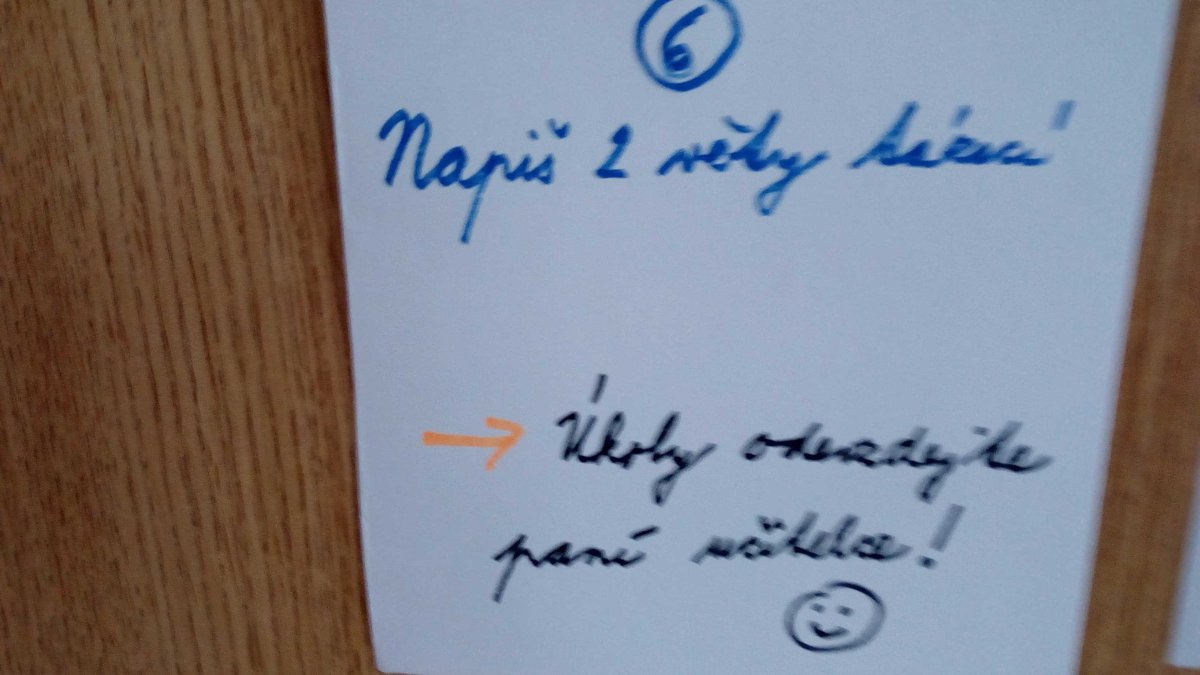 6
Napiš 2 věty tázací
Úkoly odevzdejte
paní učitelce!